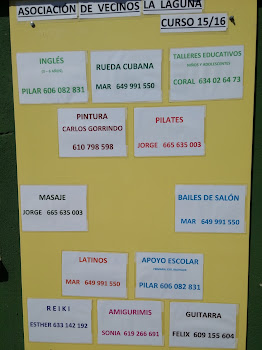 ASOCIACIÓN DE VECINOS LA LAGUNA
CURSO 15/16
INGLÉS
PILAR 606 082 831
RUEDA CUBANA
MAR 649 991 550
TALLERES EDUCATIVOS
CORAL 634 02 64 73
PINTURA
CARLOS GORRINDO
610 798 598
PILATES
JORGE 665 635 003
MASAJE
JORGE 665 635 003
BAILES DE SALÓN
MAR 649 991 550
LATINOS
MAR 649 991 550
APOYO ESCOLAR
PILAR 606 082 831
REIKI
ESTHER 633 142 192
AMIGURIMIS
SONIA 619 266 691
GUITARRA
FELIX 609 155 604